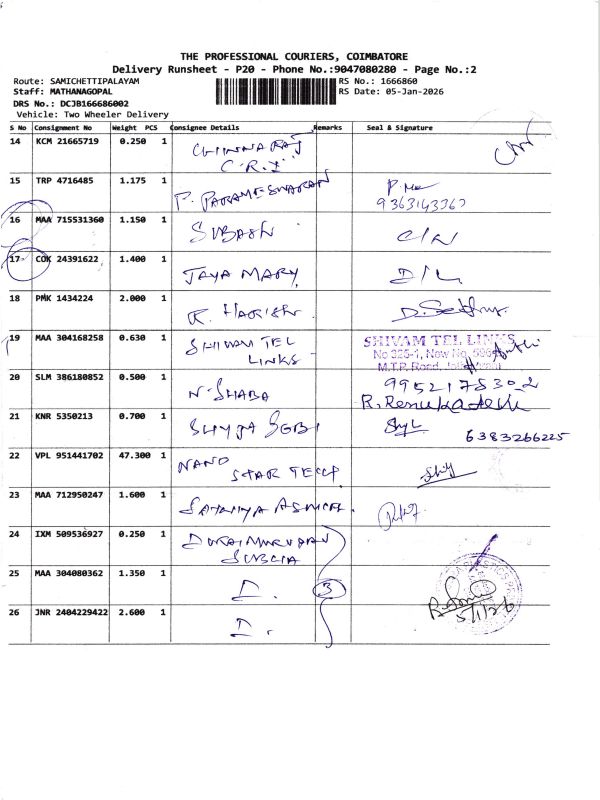 THE PROFESSIONAL COURIERS, COIMBATORE
Delivery Runsheet - P20 - Phone No.:9047080280 - Page No.:2
Route: SAMICHETTIPALAYAM
RS No.: 1666860
Staff: MATHANAGOPAL
RS Date: 05-Jan-2026
DRS No.: DCJB166686002
Vehicle: Two Wheeler Delivery
S No Consignment No Weight PCS Consignee Details Remarks Seal & Signature
14 KCM 21665719 0.250 1 CHINNARAJ
C.R.I
15 TRP 4716485 1.175 1 P. PARAMESWARAN
9363143367
16 MAA 715531360 1.150 1 SUBASH
17 COK 24391622 1.400 1 JAYA MARY D/L
18 PMK 1434224 2.000 1 K. HARISH
19 MAA 304168258 0.630 1 SHIVAM TEL
LINKS
SHIVAM TEL LINKS
M.T.P. Road,
20 SLM 386180852 0.500 1 N. SHABA 9952178302
R. Renukadevi
21 KNR 5350213 0.700 1 6383266225
22 VPL 951441702 47.300 1 NANO
STAR TECH
23 MAA 712950247 1.600 1
24 IXM 509536927 0.250 1 DURAIMURUGAN
25 MAA 304080362 1.350 1 D. 3
5/1/26
26 JNR 2404229422 2.600 1 D.